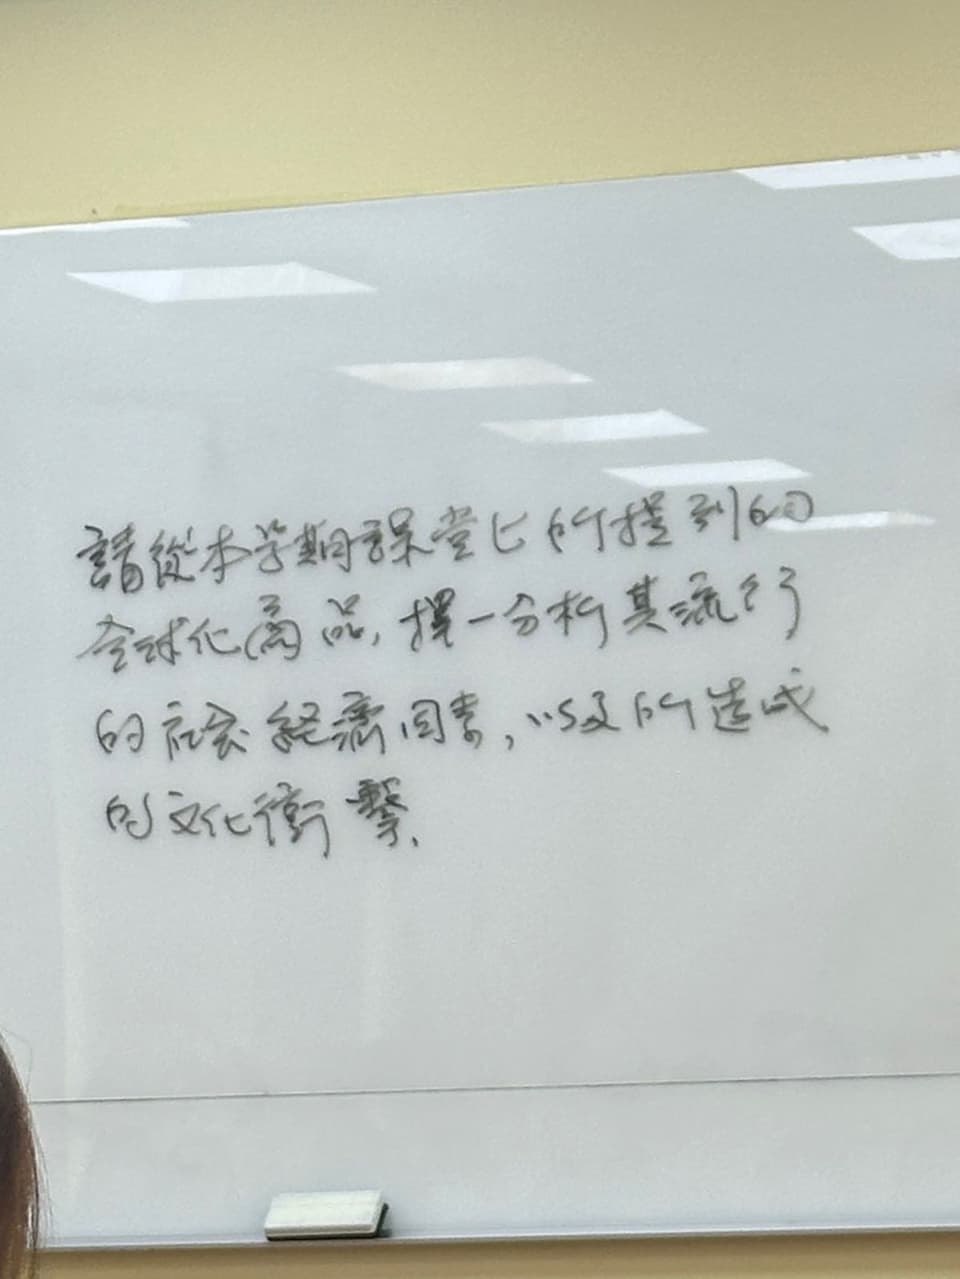 請從本学期課堂上所提到的
全球化商品,擇一分析其流行
的社会経濟因素,以及所造成
的文化衝擊.